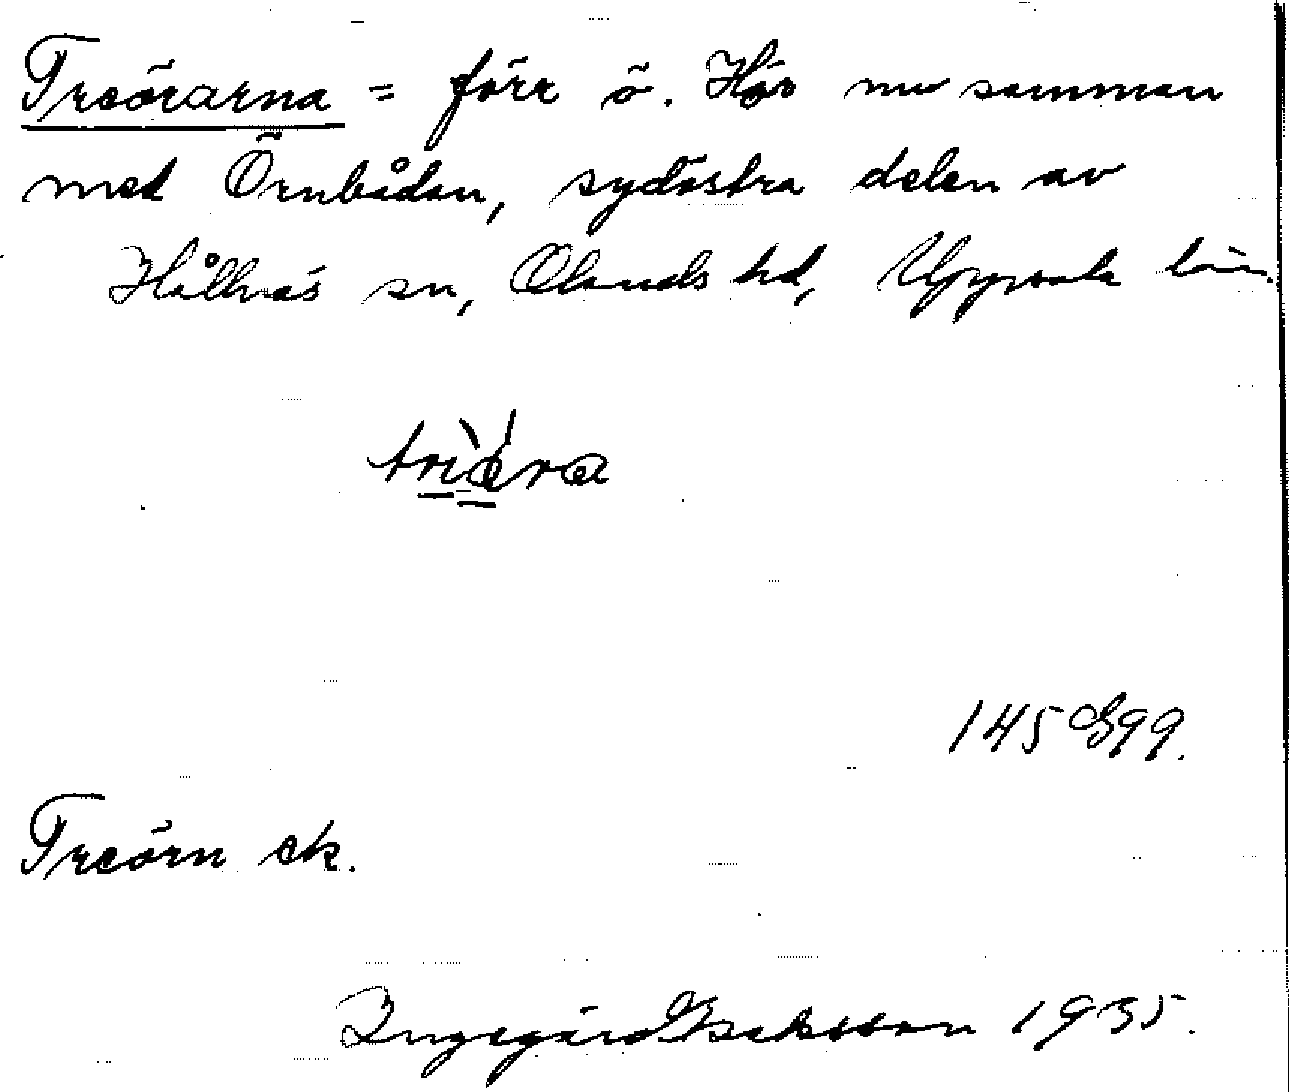 Treörarna = förr ö. Hör nu samman
med Örnbådan, sydöstra delen av
Hållnäs sn, Olands hd, Uppsala län.
145 G 99.
Treörn ek.
Ingegärd Isaksson 1935.